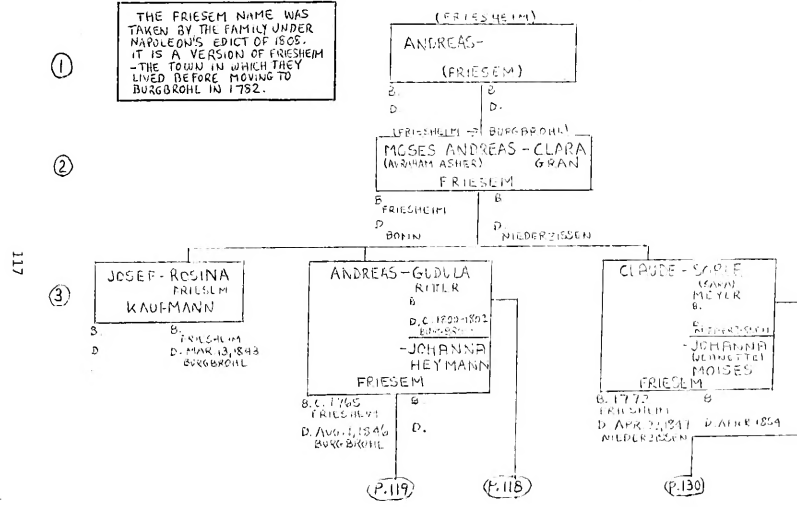 THE FRIESEM NAME WAS
TAKEN BY THE FAMILY UNDER
NAPOLEON'S EDICT OF 1808.
IT IS A VERSION OF FRIESHEIM
-THE TOWN IN WHICH THEY
LIVED BEFORE MOVING TO
BURGBROHL IN 1782.
(FRIESHEIM)
1
ANDREAS-
(FRIESEM)
B. B
D D.
(FRIESHEIM → BURGBROHL)
2
MOSES ANDREAS - CLARA
(AVRAHAM ASHER) GRAN
FRIESEM
B B
FRIESHEIM
D D.
BONN NIEDERZISSEN
117
3
JOSEF - ROSINA
FRIESEM
KAUFMANN
B. B.
FRIESHEIM
D D. MAR 13, 1843
BURGBROHL
ANDREAS - GUDULA
RITTER
B
D.C. 1800-1802
BURGBROHL
-JOHANNA
HEYMANN
FRIESEM
B.C. 1765 B.
FRIESHEIM
D. AUG. 1, 1846 D.
BURGBROHL
CLAUDE - SOPIE
(SARA)
MEYER
B.
D.
NIEDERZISSEN
-JOHANNA
(JEANETTE)
MOISES
FRIESEM
B. 1772 B
FRIESHEIM
D APR , 1847 D. APR 1854
NIEDERZISSEN
P.119
P.118
P.130